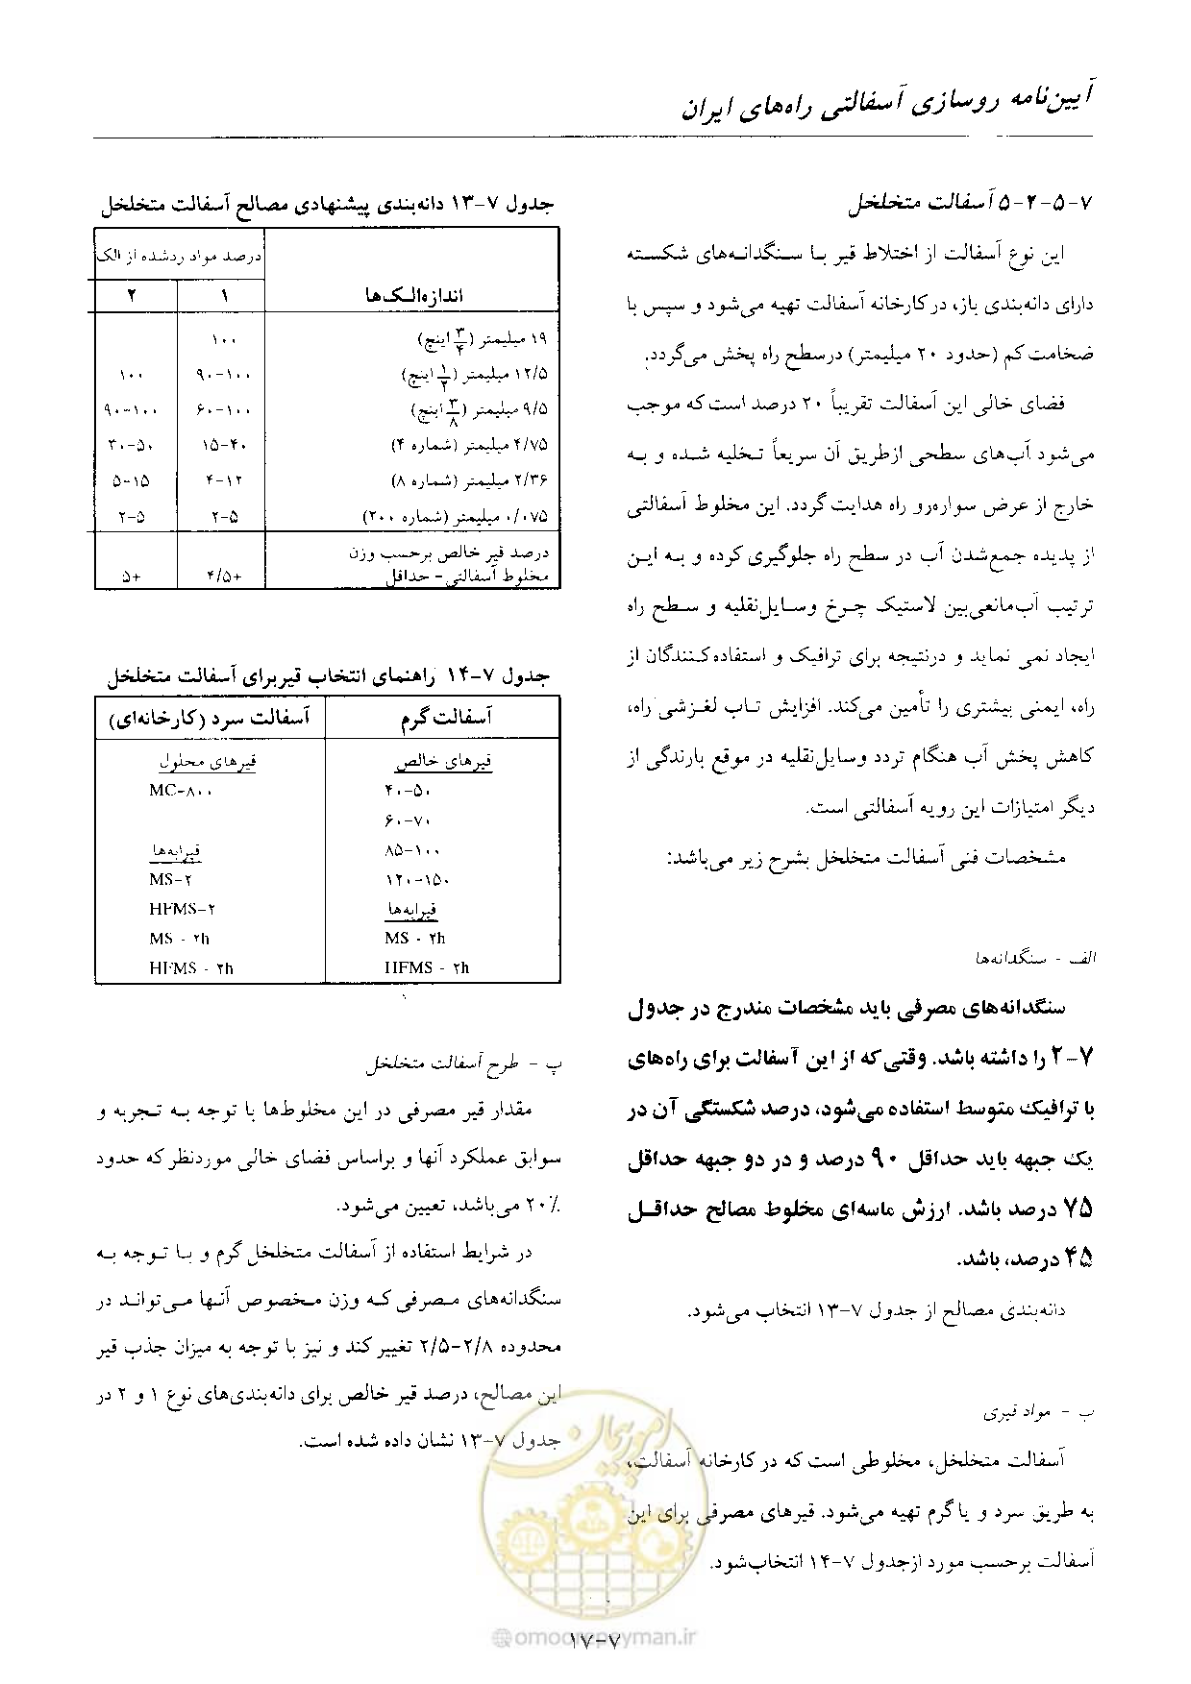 آیین‌نامه روسازی آسفالتی راه‌های ایران
۷-۵-۲-۵ آسفالت متخلخل
این نوع آسفالت از اختلاط قیر با سنگدانه‌های شکسته
دارای دانه‌بندی باز، در کارخانه آسفالت تهیه می‌شود و سپس با
ضخامت کم (حدود ۲۰ میلیمتر) درسطح راه پخش می‌گردد.
فضای خالی این آسفالت تقریباً ۲۰ درصد است که موجب
می‌شود آب‌های سطحی ازطریق آن سریعاً تخلیه شده و به
خارج از عرض سواره‌رو راه هدایت گردد. این مخلوط آسفالتی
از پدیده جمع‌شدن آب در سطح راه جلوگیری کرده و به این
ترتیب آب‌مانعی‌بین لاستیک چرخ وسایل‌نقلیه و سطح راه
ایجاد نمی نماید و درنتیجه برای ترافیک و استفاده‌کنندگان از
راه، ایمنی بیشتری را تأمین می‌کند. افزایش تاب لغزشی راه،
کاهش پخش آب هنگام تردد وسایل‌نقلیه در موقع بارندگی از
دیگر امتیازات این رویه آسفالتی است.
مشخصات فنی آسفالت متخلخل بشرح زیر می‌باشد:
الف - سنگدانه‌ها
سنگدانه‌های مصرفی باید مشخصات مندرج در جدول
۷-۲ را داشته باشد. وقتی‌که از این آسفالت برای راه‌های
با ترافیک متوسط استفاده می‌شود، درصد شکستگی آن در
یک جبهه باید حداقل ۹۰ درصد و در دو جبهه حداقل
۷۵ درصد باشد. ارزش ماسه‌ای مخلوط مصالح حداقل
۴۵ درصد، باشد.
دانه‌بندی مصالح از جدول ۷-۱۳ انتخاب می‌شود.
ب - مواد قیری
آسفالت متخلخل، مخلوطی است که در کارخانه آسفالت،
به طریق سرد و یا گرم تهیه می‌شود. قیرهای مصرفی برای این
آسفالت برحسب مورد ازجدول ۷-۱۴ انتخاب‌شود.
جدول ۷-۱۳ دانه‌بندی پیشنهادی مصالح آسفالت متخلخل
درصد مواد ردشده از الک
اندازه‌الک‌ها ۱ ۲
۱۹ میلیمتر (۳/۴ اینچ) ۱۰۰
۱۲/۵ میلیمتر (۱/۲ اینچ) ۹۰-۱۰۰ ۱۰۰
۹/۵ میلیمتر (۳/۸ اینچ) ۶۰-۱۰۰ ۹۰-۱۰۰
۴/۷۵ میلیمتر (شماره ۴) ۱۵-۴۰ ۳۰-۵۰
۲/۳۶ میلیمتر (شماره ۸) ۴-۱۲ ۵-۱۵
۰/۰۷۵ میلیمتر (شماره ۲۰۰) ۲-۵ ۲-۵
درصد قیر خالص برحسب وزن
مخلوط آسفالتی - حداقل ۴/۵+ ۵+
جدول ۷-۱۴ راهنمای انتخاب قیربرای آسفالت متخلخل
آسفالت گرم آسفالت سرد (کارخانه‌ای)
قیرهای خالص قیرهای محلول
۴۰-۵۰ MC-۸۰۰
۶۰-۷۰
۸۵-۱۰۰ قیرابه‌ها
۱۲۰-۱۵۰ MS-۲
قیرابه‌ها HFMS-۲
MS - ۲h MS - ۲h
HFMS - ۲h HFMS - ۲h
پ - طرح آسفالت متخلخل
مقدار قیر مصرفی در این مخلوط‌ها با توجه به تجربه و
سوابق عملکرد آنها و براساس فضای خالی موردنظر که حدود
۲۰٪ می‌باشد، تعیین می‌شود.
در شرایط استفاده از آسفالت متخلخل گرم و با توجه به
سنگدانه‌های مصرفی که وزن مخصوص آنها می‌تواند در
محدوده ۲/۸-۲/۵ تغییر کند و نیز با توجه به میزان جذب قیر
این مصالح، درصد قیر خالص برای دانه‌بندی‌های نوع ۱ و ۲ در
جدول ۷-۱۳ نشان داده شده است.
امور پیمان
@omoorepeyman.ir
۷-۱۷